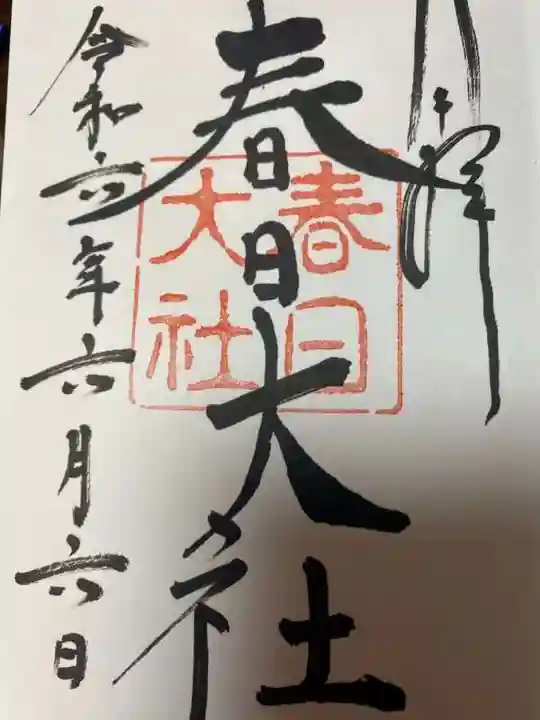 奉拝
春日大社
春日大社
令和六年六月六日